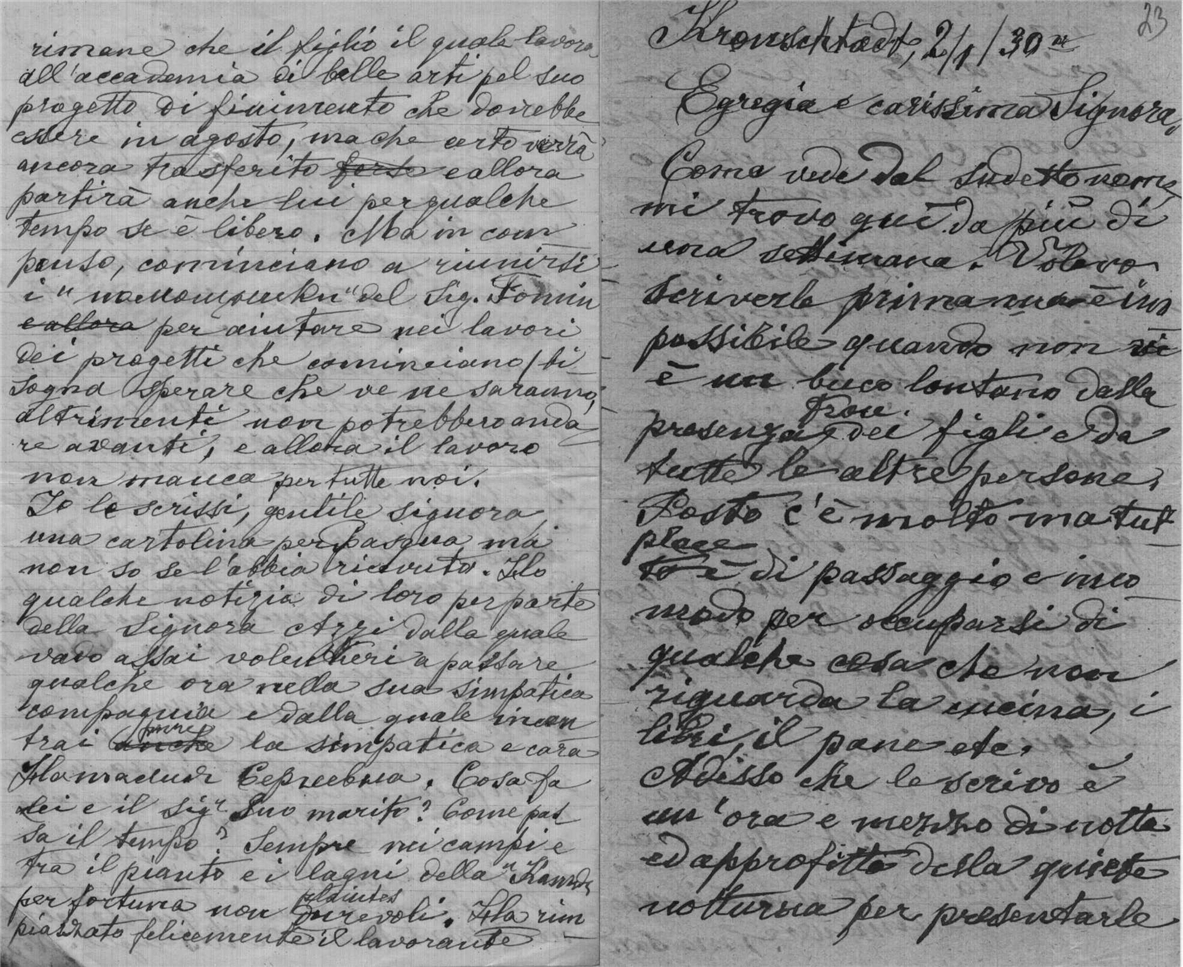 rimane che il figlio il quale lavora
all'accademia di belle arti pel suo
progetto di finimento che dovrebbe
essere in agosto, ma che certo verrà
ancora trasferito forse e allora
partirà anche lui per qualche
tempo se è libero. Ma in com
penso, cominciano a riunirsi
i "помощники" del Sig. Fomin
e allora per aiutare nei lavori
dei progetti che cominciano/bi
sogna sperare che ve ne saranno,
altrimenti non potrebbero anda
re avanti, e allora il lavoro
non manca per tutte noi.
Io le scrissi, gentile signora
una cartolina per Pasqua ma
non so se l'abbia ricevuta. Ho
qualche notizia di loro per parte
della Signora Azzi dalla quale
vado assai volentieri a passare
qualche ora nella sua simpatica
compagnia e dalla quale incon
trai anche pure la simpatica e cara
Сергеевна. Cosa fa
lei e il sigr Suo marito? Come pas
sa il tempo? Sempre nei campi e
tra il pianto e i lagni della
per fortuna non durevoli plaintes. Ha rim
piazzato felicemente il lavorante
23
Kronschtadt, 2/1/30
Egregia e carissima Signora,
Come vede dal sudetto nome,
mi trovo qui da più di
una settimana. Volevo
scriverle prima ma è im
possibile quando non vi
è un buco lontano dalla
trou.
presenza dei figli e da
tutte le altre persone.
Posto c'è molto ma tut
place
to è di passaggio e inco
modo per occuparsi di
qualche cosa che non
riguarda la cucina, i
libri, il pane etc.
Adisso che le scrivo è
un'ora e mezzo di notte
ed approfitto della quiete
notturna per presentarle